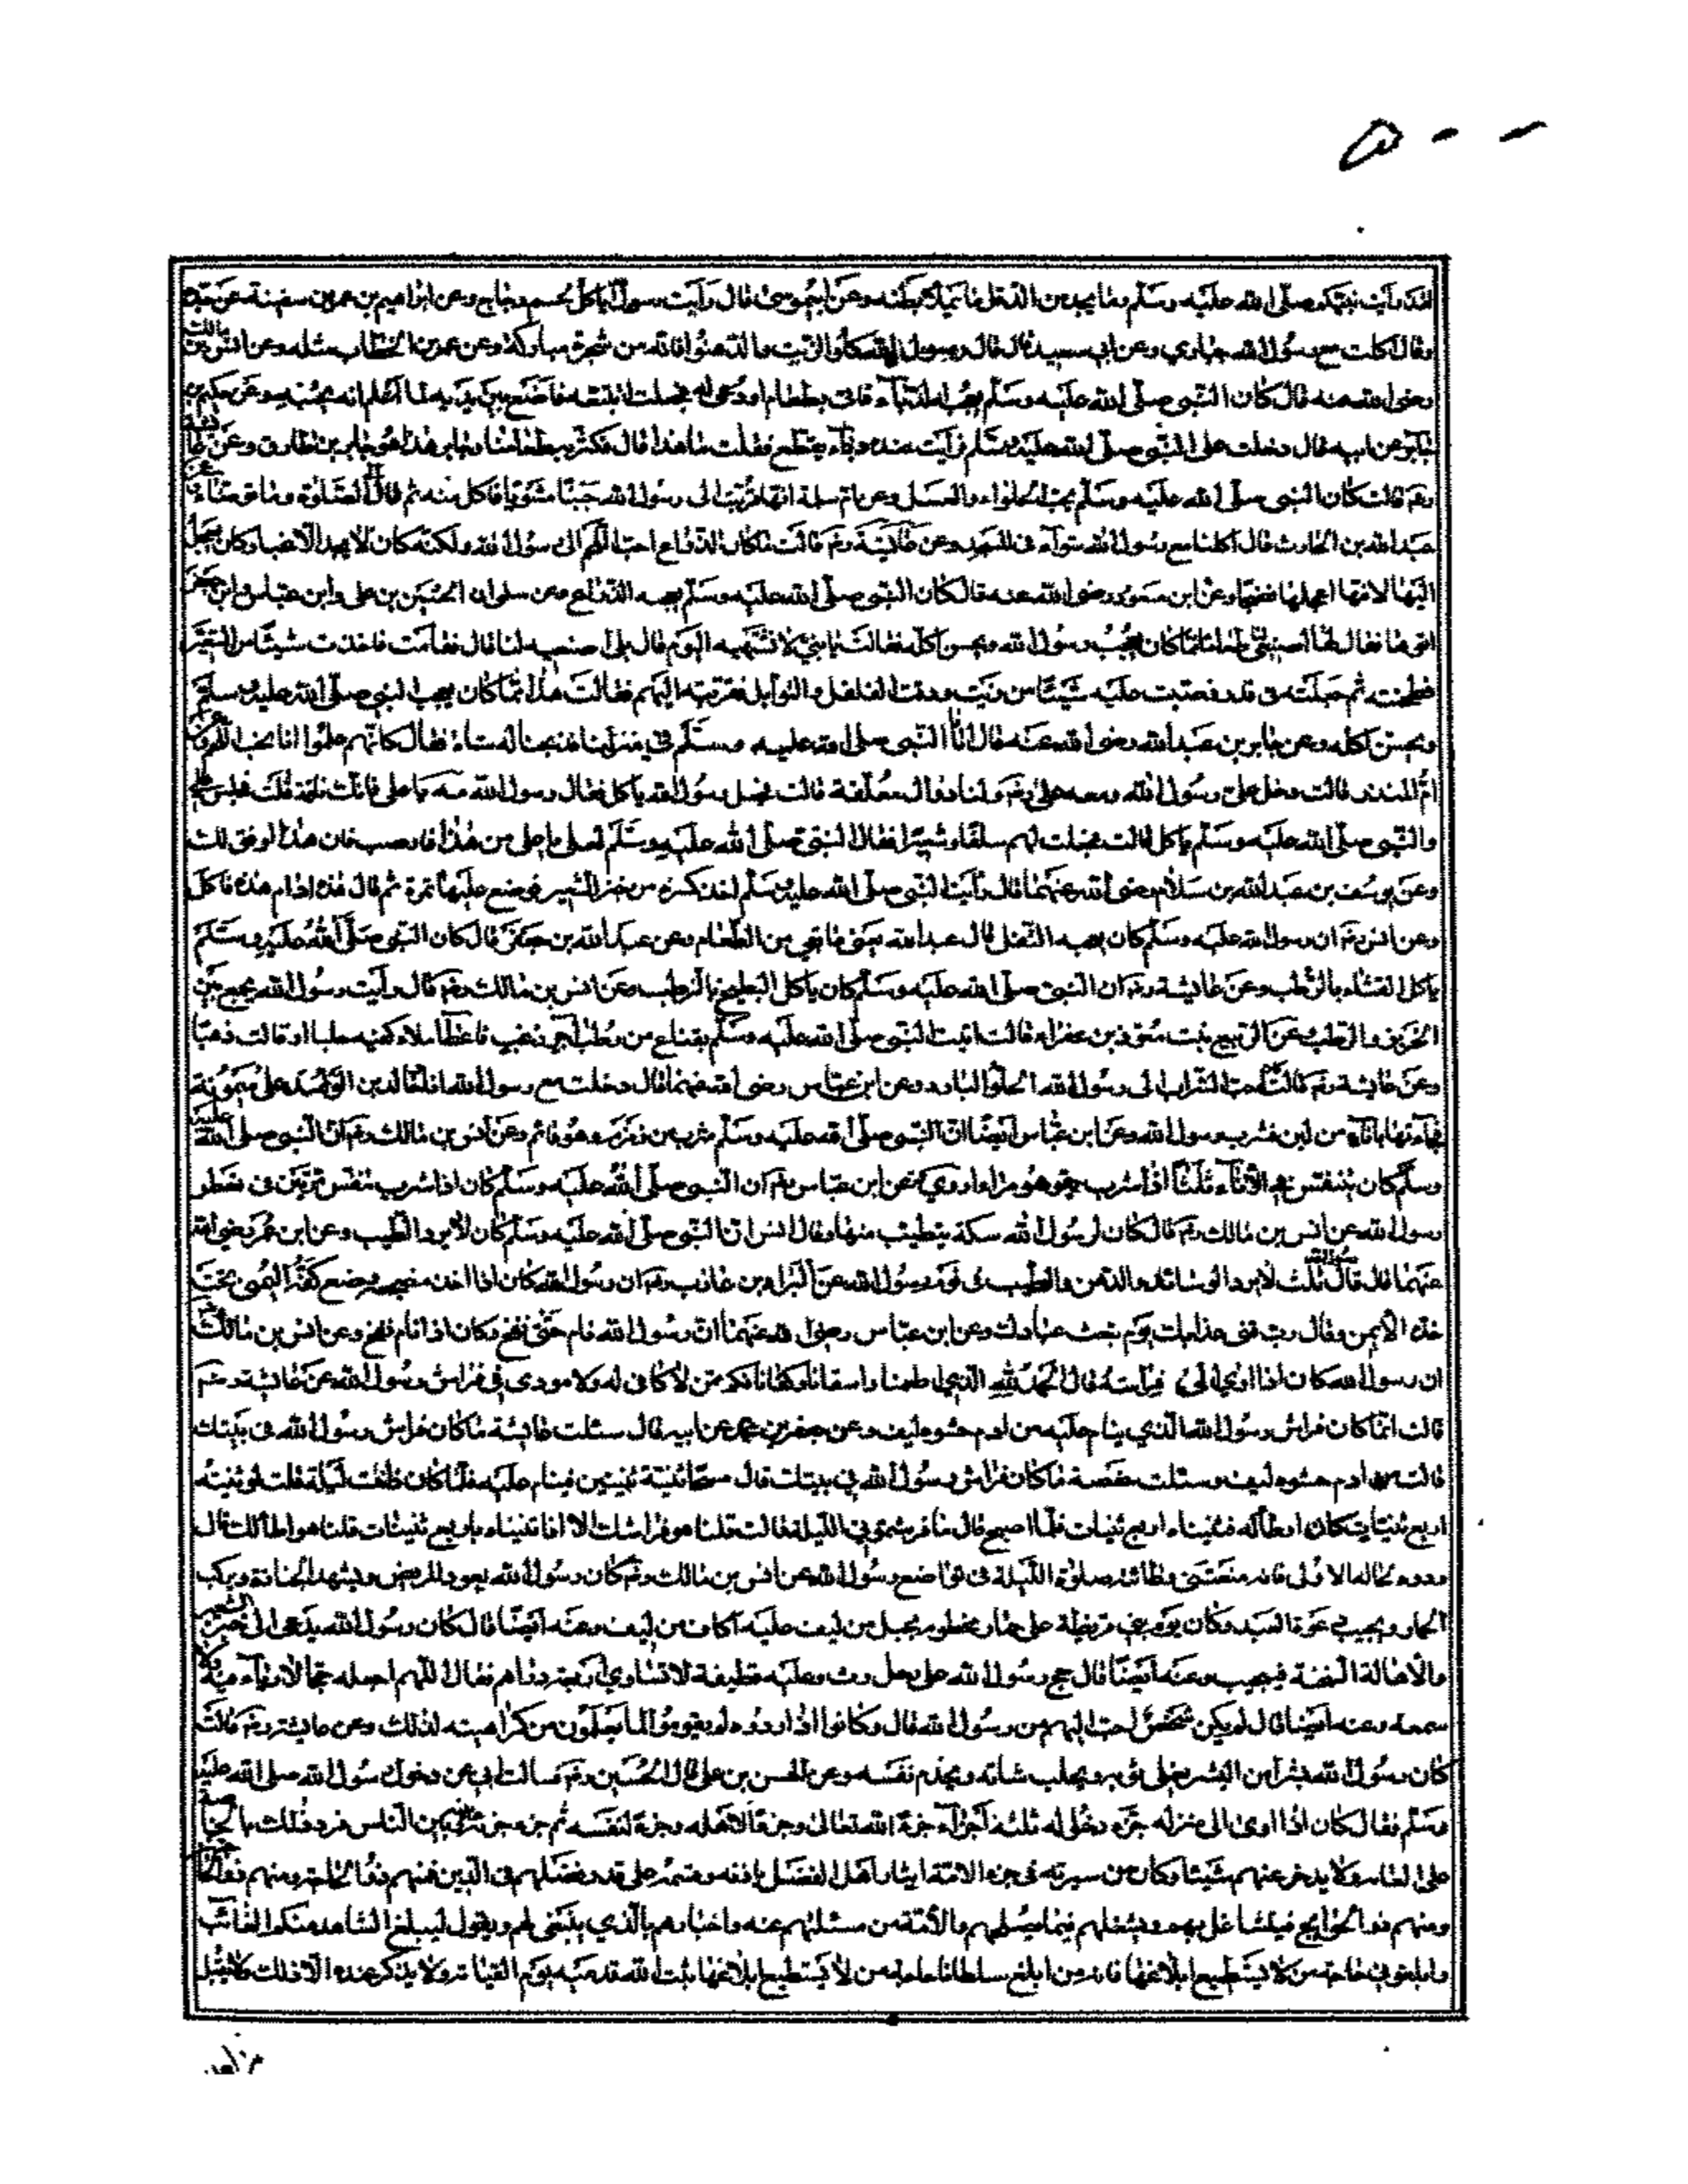 لقد رأيت نبيكم صلى الله عليه وسلم وما يجد من الدقل ما يملأ بطنه وعن ابي موسى قال رأيت رسول الله ياكل لحم دجاج وعن ابراهيم بن عمر بن سفينة عن جده
وقال اكلت مع رسول الله حبارى وعن ابى سعيد قال قال رسول الله كلوا الزيت وادهنوا فانه من شجرة مباركة وعن عمر بن الخطاب مثله وعن انس بن مالك
رضى الله عنه قال كان النبى صلى الله عليه وسلم يعجبه الدباء فاتى بطعام او دعى له فجعلت اتبعه فاضعه بين يديه لما اعلم انه يحبه وعن حكيم بن
جابر عن ابيه قال دخلت على النبى صلى الله عليه وسلم فرأيت عنده دباء يقطع فقلت ما هذا قال نكثر به طعامنا وجابر هذا هو جابر بن طارق وعن عائشة
رضم قالت كان النبى صلى الله عليه وسلم يحب الحلواء والعسل وعن ام سلمة انها قربت الى رسول الله جنبا مشويا فاكل منه ثم قام الى الصلوة وما توضأ عن
عبد الله بن الحارث قال اكلنا مع رسول الله شواء فى المسجد وعن عائشة رضم قالت ما كان الذراع احب اللحم الى رسول الله ولكنه كان لا يجد اللحم الا غبا وكان يعجل
اليها لانها اعجلها نضجا وعن ابن مسعود رضى الله عنه قال كان النبى صلى الله عليه وسلم يعجبه الذراع وعن سلمى ان الحسن بن على وابن عباس وابن جعفر
اتوها فقال لها اصنعى لنا طعاما مما كان يعجب رسول الله ويحسن اكله فقالت يا بنى لا تشتهيه اليوم قال بلى اصنعيه لنا قال فقامت فاخذت شيئا من الشعير
فطحنته ثم جعلته فى قدر فصبت عليه شيئا من زيت ودقت الفلفل والتوابل فقربته اليهم فقالت هذا مما كان يعجب النبى صلى الله عليه وسلم
ويحسن اكله وعن جابر بن عبد الله رضى الله عنه قال اتانا النبى صلى الله عليه وسلم فى منزلنا فذبحنا له شاة فقال كانهم علموا انا نحب اللحم وعن
ام المنذر قالت دخل على رسول الله ومعه على رضم ولنا دوال معلقة قالت فجعل رسول الله ياكل فقال رسول الله مه يا على فانك ناقة قالت فجلس على
والنبى صلى الله عليه وسلم ياكل قالت فجعلت لهم سلقا وشعيرا فقال النبى صلى الله عليه وسلم لعلى يا على من هذا فاصب فان هذا اوفق لك
وعن يوسف بن عبد الله بن سلام رضى الله عنهما قال رأيت النبى صلى الله عليه وسلم اخذ كسرة من خبز الشعير فوضع عليها تمرة ثم قال هذه ادام هذه فاكل
وعن انس رضم ان رسول الله عليه وسلم كان يعجبه الثفل قال عبد الله يعنى ما بقى من الطعام وعن عبد الله بن جعفر قال كان النبى صلى الله عليه وسلم
ياكل القثاء بالرطب وعن عائشة رضم ان النبى صلى الله عليه وسلم كان ياكل البطيخ بالرطب وعن انس بن مالك رضم قال رأيت رسول الله يجمع بين
الخربز والرطب عن الربيع بنت معوذ بن عفراء قالت اتيت النبى صلى الله عليه وسلم بقناع من رطب واجر زغب فاعطانى ملأ كفيه حليا او قالت ذهبا
وعن عائشة رضم قالت احب الشراب الى رسول الله الحلو البارد وعن ابن عباس رضى الله عنهما قال دخلت مع رسول الله انا وخالد بن الوليد على ميمونة
فجاءتنا باناء من لبن فشرب رسول الله وعن ابن عباس ايضا ان النبى صلى الله عليه وسلم شرب من زمزم وهو قائم وعن انس بن مالك رضم ان النبى صلى الله عليه
وسلم كان يتنفس فى الاناء ثلثا اذا شرب ويقول هو امرأ واروى وعن ابن عباس رضم ان النبى صلى الله عليه وسلم كان اذا شرب تنفس مرتين فى تعطر
رسول الله عن انس بن مالك رضم قال كان لرسول الله سكة يتطيب منها وقال انس ان النبى صلى الله عليه وسلم كان لا يرد الطيب وعن ابن عمر رضى الله
عنهما قال قال رسول الله ثلث لا يرد الوسائد والدهن والطيب فى نوم رسول الله عن البراء بن عازب رضم ان رسول الله كان اذا اخذ مضجعه وضع كفه اليمنى تحت
خده الايمن وقال رب قنى عذابك يوم تبعث عبادك وعن ابن عباس رضى الله عنهما ان رسول الله نام حتى نفخ وكان اذا نام نفخ وعن انس بن مالك
ان رسول الله كان اذا اوى الى فراشه قال الحمد لله الذى اطعمنا واسقانا وكفانا فكم ممن لا كافى له ولا مودى فى فراش رسول الله عن عائشة رضم
قالت انما كان فراش رسول الله الذى ينام عليه من ادم حشوه ليف وعن جعفر بن محمد عن ابيه قال سئلت عائشة ما كان فراش رسول الله فى بيتك
قالت من ادم حشوه ليف وسئلت حفصة ما كان فراش رسول الله فى بيتك قال مسحا نثنيه ثنيتين فينام عليه فلما كان ذات ليلة قلت لو ثنيته
اربع ثنيات كان اوطأ له فثنيناه اربع ثنيات فلما اصبح قال ما فرشتمونى الليلة قالت قلنا هو فراشك الا انا ثنيناه باربع ثنيات قلنا هو اوطأ لك قال
ردوه لحاله الاولى فانه منعتنى وطائته صلوة الليلة فى تواضع رسول الله عن انس بن مالك رضم كان رسول الله يعود المريض ويشهد الجنازة ويركب
الحمار ويجيب دعوة العبد وكان يوم بنى قريظة على حمار مخطوم بحبل من ليف عليه اكاف من ليف وعنه ايضا قال كان رسول الله يدعى الى خبز الشعير
والاهالة السنخة فيجيب وعنه ايضا قال حج رسول الله على رحل رث وعليه قطيفة لا تساوى اربعة دراهم فقال اللهم اجعله حجا لا رياء فيه ولا
سمعة وعنه ايضا قال لم يكن شخص احب اليهم من رسول الله قال وكانوا اذا رأوه لم يقوموا لما يعلمون من كراهيته لذلك وعن عايشة رضم قالت
كان رسول الله بشرا من البشر يفلى ثوبه ويحلب شاته ويخدم نفسه وعن الحسن بن على قال الحسين رضم سالت ابى عن دخول رسول الله صلى الله عليه
وسلم فقال كان اذا اوى الى منزله جزء دخوله ثلثة اجزاء جزء الله تعالى وجزء لاهله وجزء لنفسه ثم جزء جزئه بينه وبين الناس فرد ذلك بالخاصة
على العامة ولا يدخر عنهم شيئا وكان من سيرته فى جزء الامة ايثار اهل الفضل باذنه وقسمه على قدر فضلهم فى الدين فمنهم ذو الحاجة ومنهم ذو الحاجتين
ومنهم ذو الحوائج فيتشاغل بهم ويشغلهم فيما يصلحهم والامة من مسئلتهم عنه واخبارهم بالذى ينبغى لهم ويقول ليبلغ الشاهد منكم الغائب
وابلغونى حاجة من لا يستطيع ابلاغها فانه من ابلغ سلطانا حاجة من لا يستطيع ابلاغها ثبت الله قدميه يوم القيامة ولا يذكر عنده الا ذلك ولا يقبل